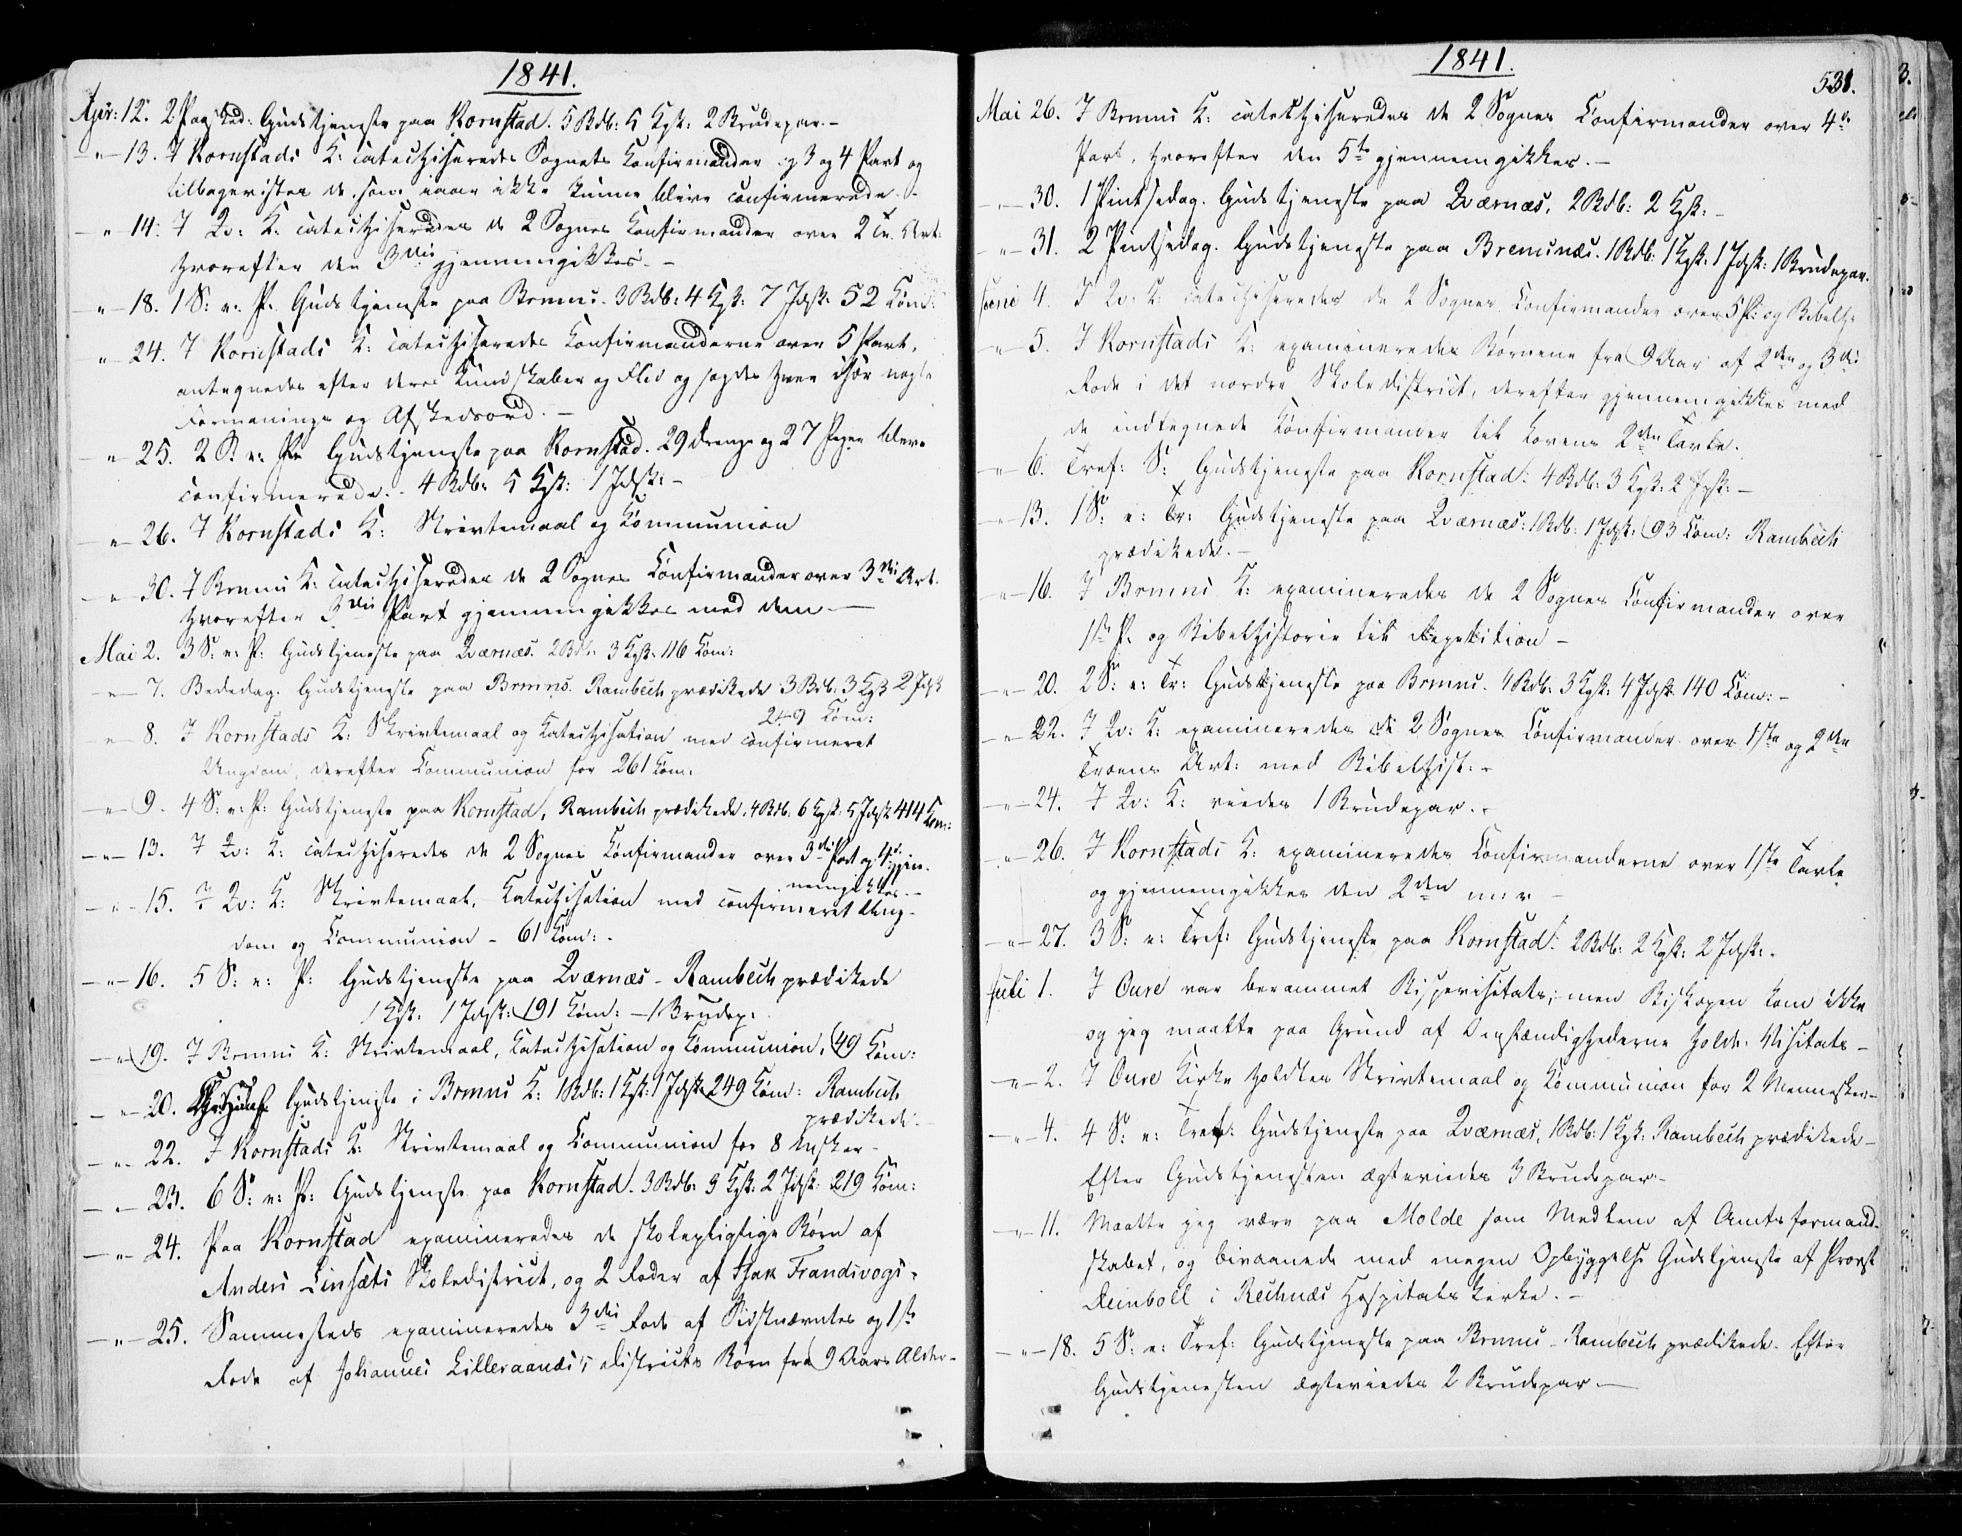 1841.
Apr: 12. 2 Paasked: Gudstjeneste paa Kornstad. 5 Bdb: 5 Kgk: 2 Brudepar. -
- " - 13. I Kornstads K: catechiseredes Sognets Confirmander i 3 og 4 Part og
tilbagevistes de, som iaar ikke kunne blive confirmerede. -
- " 14. I Qv: K: catechiseredes de 2 Sognes Confirmander over 2 Tr. Art:
hvorefter den 3die gjennemgikkes. -
" - 18. 1 S: e: P: Gudstjeneste paa Bremsn. 3 Bdb: 4 Kgk: 7 Idsk: 52 Com:
" - 24. I Kornstads K: catechiseredes Confirmanderne over 5 Part,
antegnedes efter deres Kundskaber og Flid og sagdes hver især nogle
Formanings og Afskedsord. -
- " 25. 2 S. e: P: Gudstjeneste paa Kornstad. 29 Drenge og 27 Piger bleve
confirmerede. - 4 Bdb: 5 Kgk: 1 Idsk: -
- " - 26. I Kornstads K: Skriftemaal og Communion
- " - 30. I Bremsn K: catechiseredes de 2 Sognes Confirmander over 3die Art.
hvorefter 3die Part gjennemgikkes med dem -
Mai 2. 3 S: e: P: Gudstjeneste paa Qværnæs. 2 Bdb: 3 Kgk: 116 Com:
- " - 7. Bededag. Gudstjeneste paa Bremsn. Rambech prædikede 3 Bdb: 3 Kgk 2 Idsk
249 Com:
" - 8. I Kornstads K: Skriftemaal og Catechisation med confirmeret
Ungdom, derefter Communion for 261 Com:
- " - 9. 4 S: e: P: Gudstjeneste paa Kornstad, Rambech prædikede. 4 Bdb: 6 Kgk: 5 Idsk 414 Com:
- " - 13. I Qv: K: catechiseredes de 2 Sognes Confirmander over 3die Part og 4de gjen-
nemgikkes. -
- " - 15. I Qv: K: Skriftemaal, Catechisation med confirmeret Ung-
dom og Communion - 61 Com: -
- " - 16. 5 S: e: P: Gudstjeneste paa Qværnæs - Rambech prædikede
1 Kgk: 1 Idsk: 191 Com: - 1 Brudep:
- " - 19. I Bremsn K: Skriftemaal, Catechisation og Communion, 49 Com:
- " - 20. Gudstjeneste i Bremsn K: 1 Bdb: 1 Kgk: 1 Idsk: 249 Com: Rambech
prædikede.
- " - 22. I Kornstads K: Skriftemaal og Communion for 8 Msker -
- " - 23. 6 S: e: P: Gudstjeneste paa Kornstad. 3 Bdb: 3 Kgk: 2 Idsk: 219 Com:
- " - 24. Paa Kornstad examineredes de skolepligtige Børn af
Anders Linsæts Skoledistrict, og 2 Roder af Isak Frandsvogs.
- " - 25. Sammesteds examineredes 3die Rode af Sidstnævntes og 1ste
Rode af Johannes Lilleraands's districts Børn fra 9 Aars Alder -
1841.
531.
Mai 26. I Bremsn K: catechiseredes de 2 Sognes Confirmander over 4de
Part, hvorefter den 5te gjennemgikkes. -
- " - 30. 1 Pintsedag. Gudstjeneste paa Qværnæs, 2 Bdb: 2 Kgk: -
- " - 31. 2 Pintsedag. Gudstjeneste paa Bremsnæs. 1 Bdb: 1 Kgk: 1 Idsk: 1 Brudepar.
Juni 4. I Qv: K: catechiseredes de 2 Sognes Confirmander over 5 P: og Bibelh:
- " - 5. I Kornstads K: examineredes Børnene fra 9 Aar af 2den og 3die
Rode i det nordre Skoledistrict, derefter gjennemgikkes med
de indtegnede Confirmander til Lovens 2den Tavle.
- " - 6. Tref: S: Gudstjeneste paa Kornstad: 4 Bdb: 3 Kgk: 2 Idsk: -
- " - 13. 1 S: e: Tr: Gudstjeneste paa Qværnæs: 1 Bdb: 1 Idsk: 93 Com: Rambech
prædikede. -
- " - 16. I Bremsn K: examineredes de 2 Sognes Confirmander over
1ste P. og Bibelhistorie til Repetition -
- " - 20. 2 S: e: Tr: Gudstjeneste paa Bremsn. 4 Bdb: 3 Kgk: 4 Idsk: 140 Com: -
- " - 22. I Qv: K: examineredes de 2 Sognes Confirmander over 1ste og 2den
Troens Art: med Bibelhist: -
- " - 24. I Qv: K: viedes 1 Brudepar. -
- " - 26. I Kornstads K: examineredes Confirmanderne over 1ste Tavle
og gjennemgikkes den 2den m: v -
- " - 27. 3 S: e: Tref: Gudstjeneste paa Kornstad: 2 Bdb: 2 Kgk: 2 Idsk: -
Juli 1. I Oure var berammet Bispevisitats; men Biskopen kom ikke
og jeg maatte paa Grund af Omstændighederne holde Visitats -
- " - 2. I Oure Kirke holdtes Skriftemaal og Communion for 2 Mennesker -
- " - 4. 4 S: e: Tref: Gudstjeneste paa Qværnæs, 1 Bdb: 1 Kgk: Rambech prædikede -
Efter Gudstjenesten ægteviedes 3 Brudepar -
- " - 11. Maatte jeg være paa Molde som Medlem af Amtsformand-
skabet, og bivaanede med megen Opbyggelse Gudstjeneste af Provst
Deinboll i Reknæs Hospitals Kirke. -
- " - 18. 5 S: e: Tref: Gudstjeneste paa Bremsn - Rambech prædikede - Efter
Gudstjenesten ægteviedes 2 Brudepar -